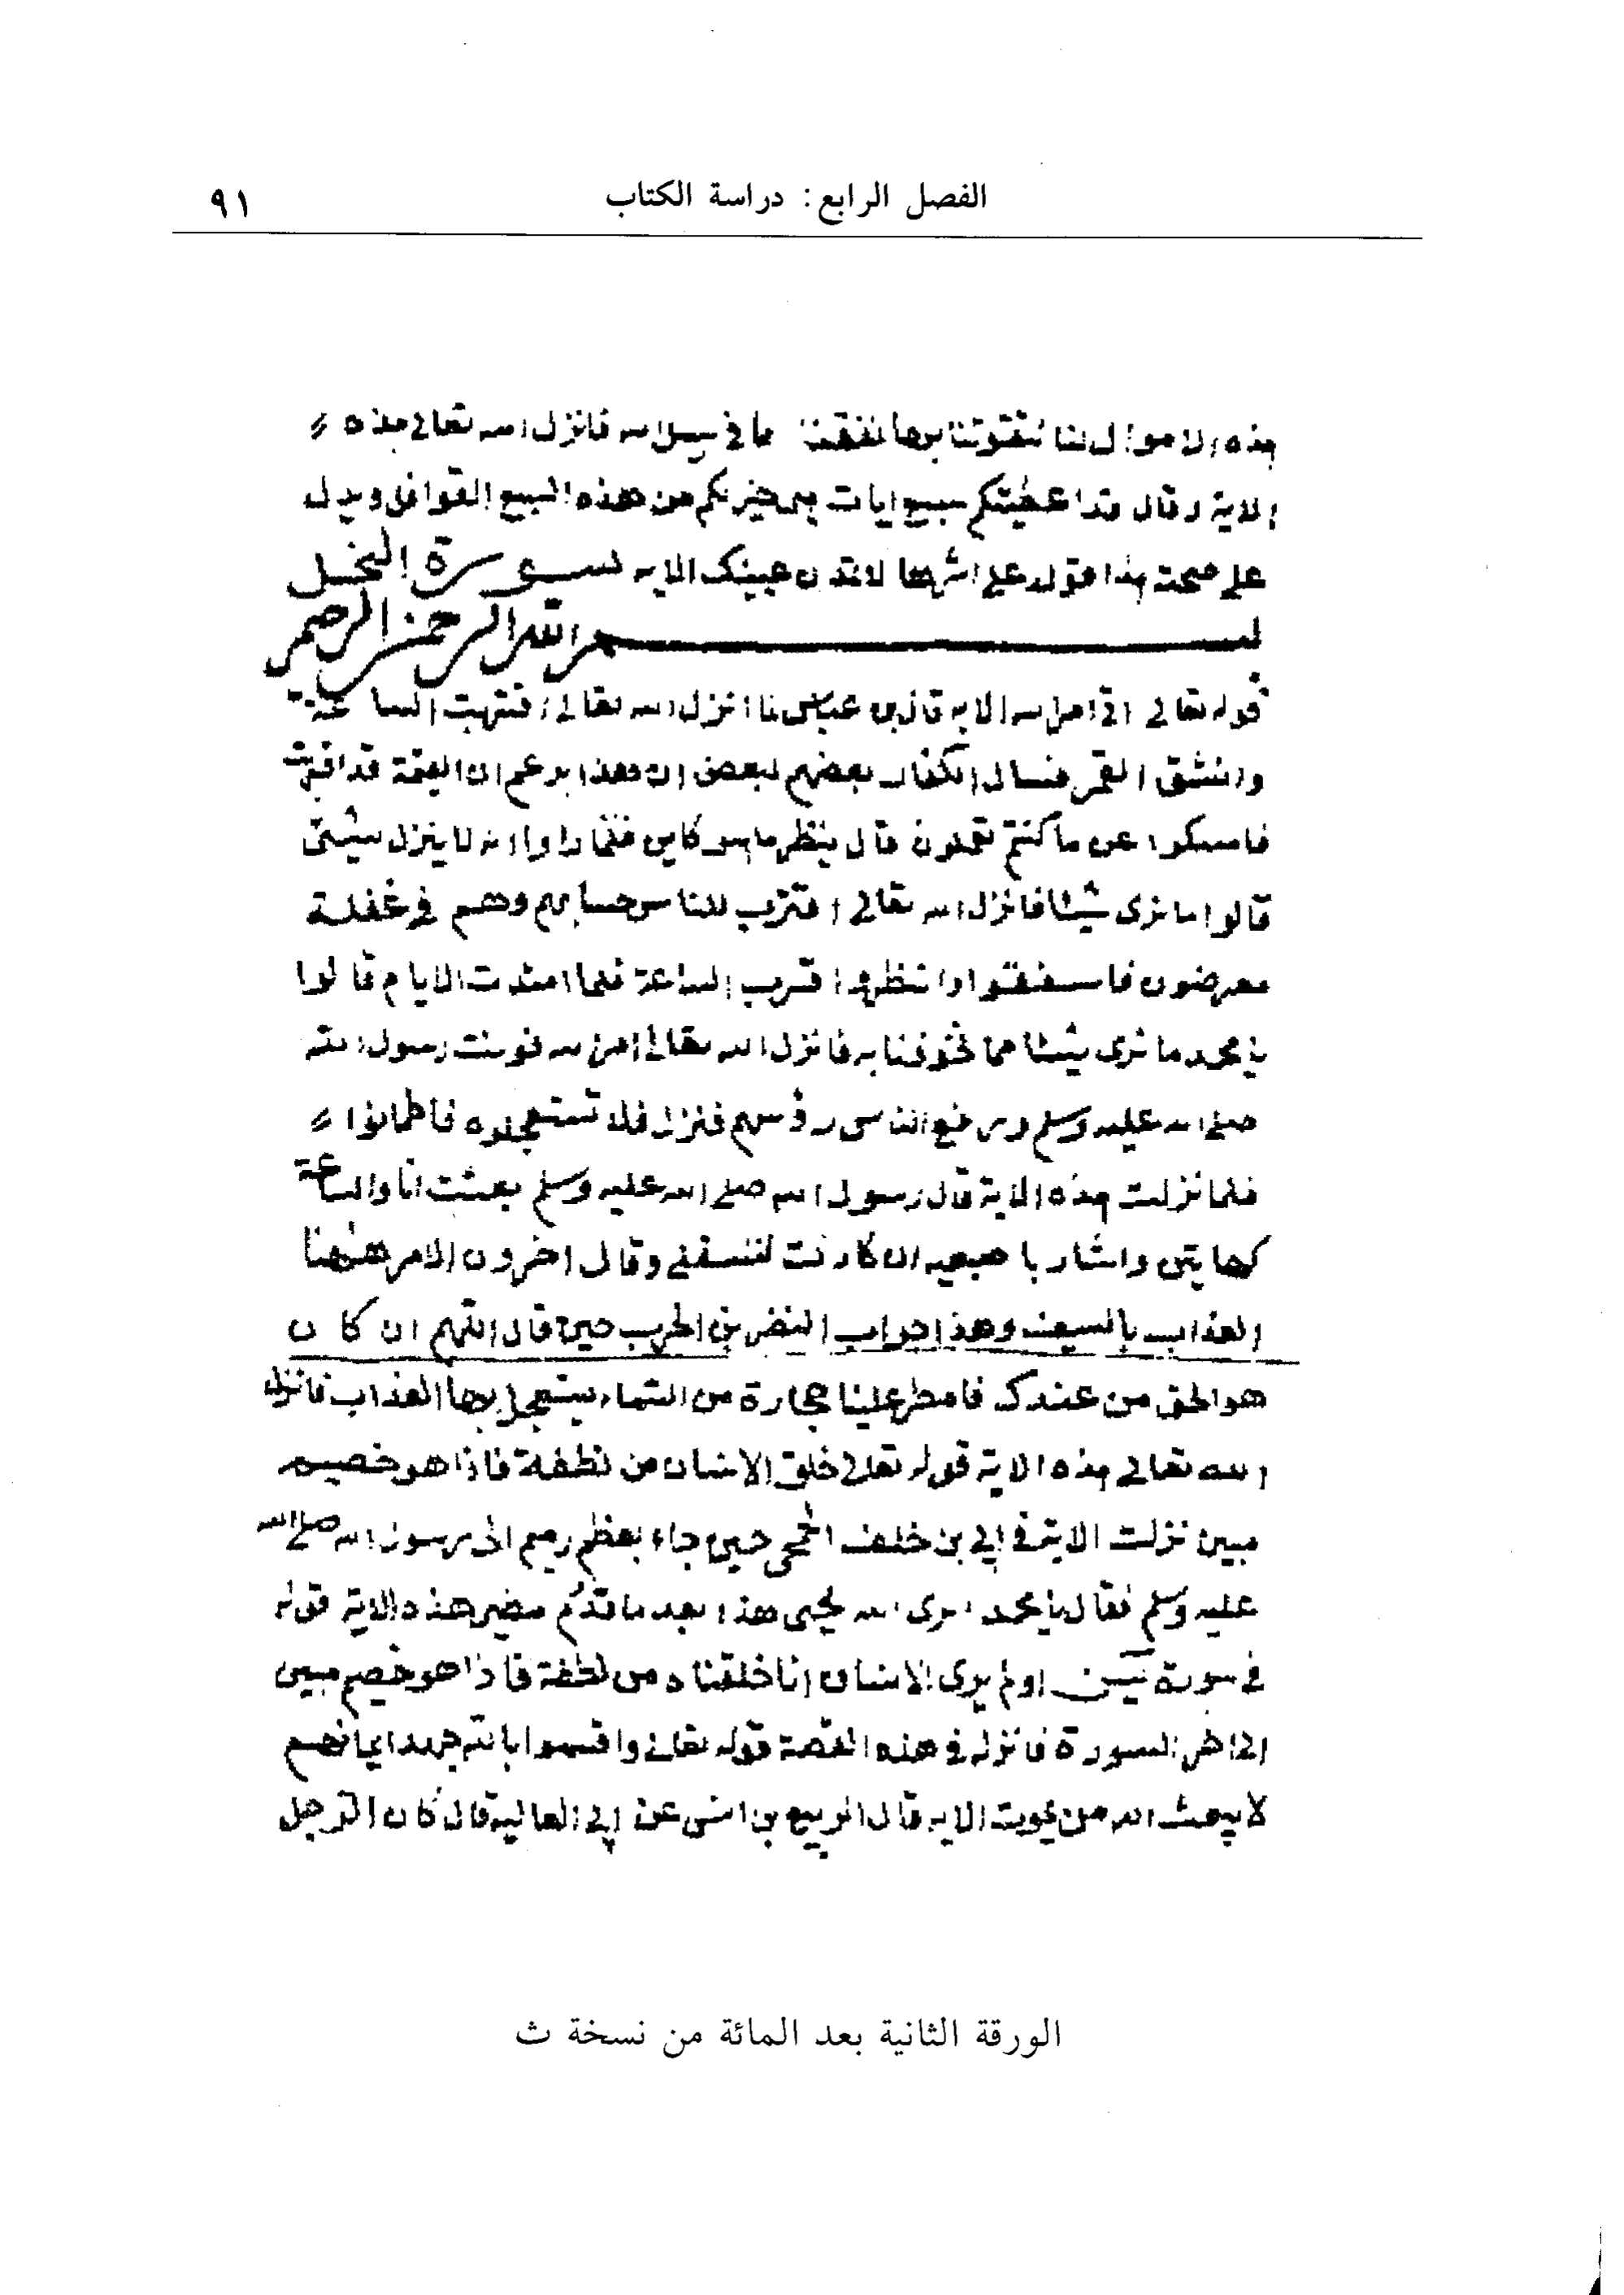 الفصل الرابع: دراسة الكتاب
٩١
هذه الاموال لنا لتقوتنا بها لنفقنا ها في سبيل الله فانزل الله تعالى هذه
الاية وقال قد اعطيتكم سبع ايات هى خير لكم من هذه السبع القوافل ويدل
على صحة هذا قوله على اثرها لا تمدن عينيك الايه سورة النحل
بسم الله الرحمن الرحيم
قوله تعالى اتى امر الله الايه قال بن عباس لما انزل الله تعالى اقتربت الساعة
وانشق القمر قال الكفار بعضهم لبعض ان هذا يزعم ان القيمة قد اقتربت
فامسكوا عن ما كنتم تعملون قال ينظر ما هو كاين فلما راوا انه لا ينزل شيئ
قالوا ما نرى شيئا فانزل الله تعالى اقترب للناس حسابهم وهم في غفلة
معرضون فاسفقوا وانتظروا قرب الساعة فلما امتدت الايام قالوا
يا محمد ما نرى شيئا مما تخوفنا به فانزل الله تعالى امر الله فوثبت رسول الله
صلى الله عليه وسلم ورفع الناس رؤسهم فنزل فلا تستعجلوه فاطمانوا
فلما نزلت هذه الاية قال رسول الله صلى الله عليه وسلم بعثت انا والساعة
كهاتين واشار باصبعيه ان كادت لتسبقني وقال اخرون الامر ههنا
العذاب بالسيف وهذا جواب النضر بن الحرب حين قال اللهم ان كان
هو الحق من عندك فامطر علينا حجارة من السماء يستعجل بها العذاب فانزل
الله تعالى هذه الاية قوله تعالى خلق الانسان من نطفة فاذا هو خصيم
مبين نزلت الاية في ابي بن خلف الجمحي حين جاء بعظم رميم الى رسول الله صلى الله
عليه وسلم فقال يا محمد اترى الله يحيى هذا بعد ما قدرم نضير هذه الاية قوله
في سورة يسن اولم يرى الانسان انا خلقناه من نطفة فاذا هو خصيم مبين
الى اخر السورة فانزله في هذه القصة قوله تعالى واقسموا بالله جهد ايمانهم
لا يبعث الله من يموت الايه قال الربيع بن انس عن ابي العالية قال كان الرجل
الورقة الثانية بعد المائة من نسخة ث